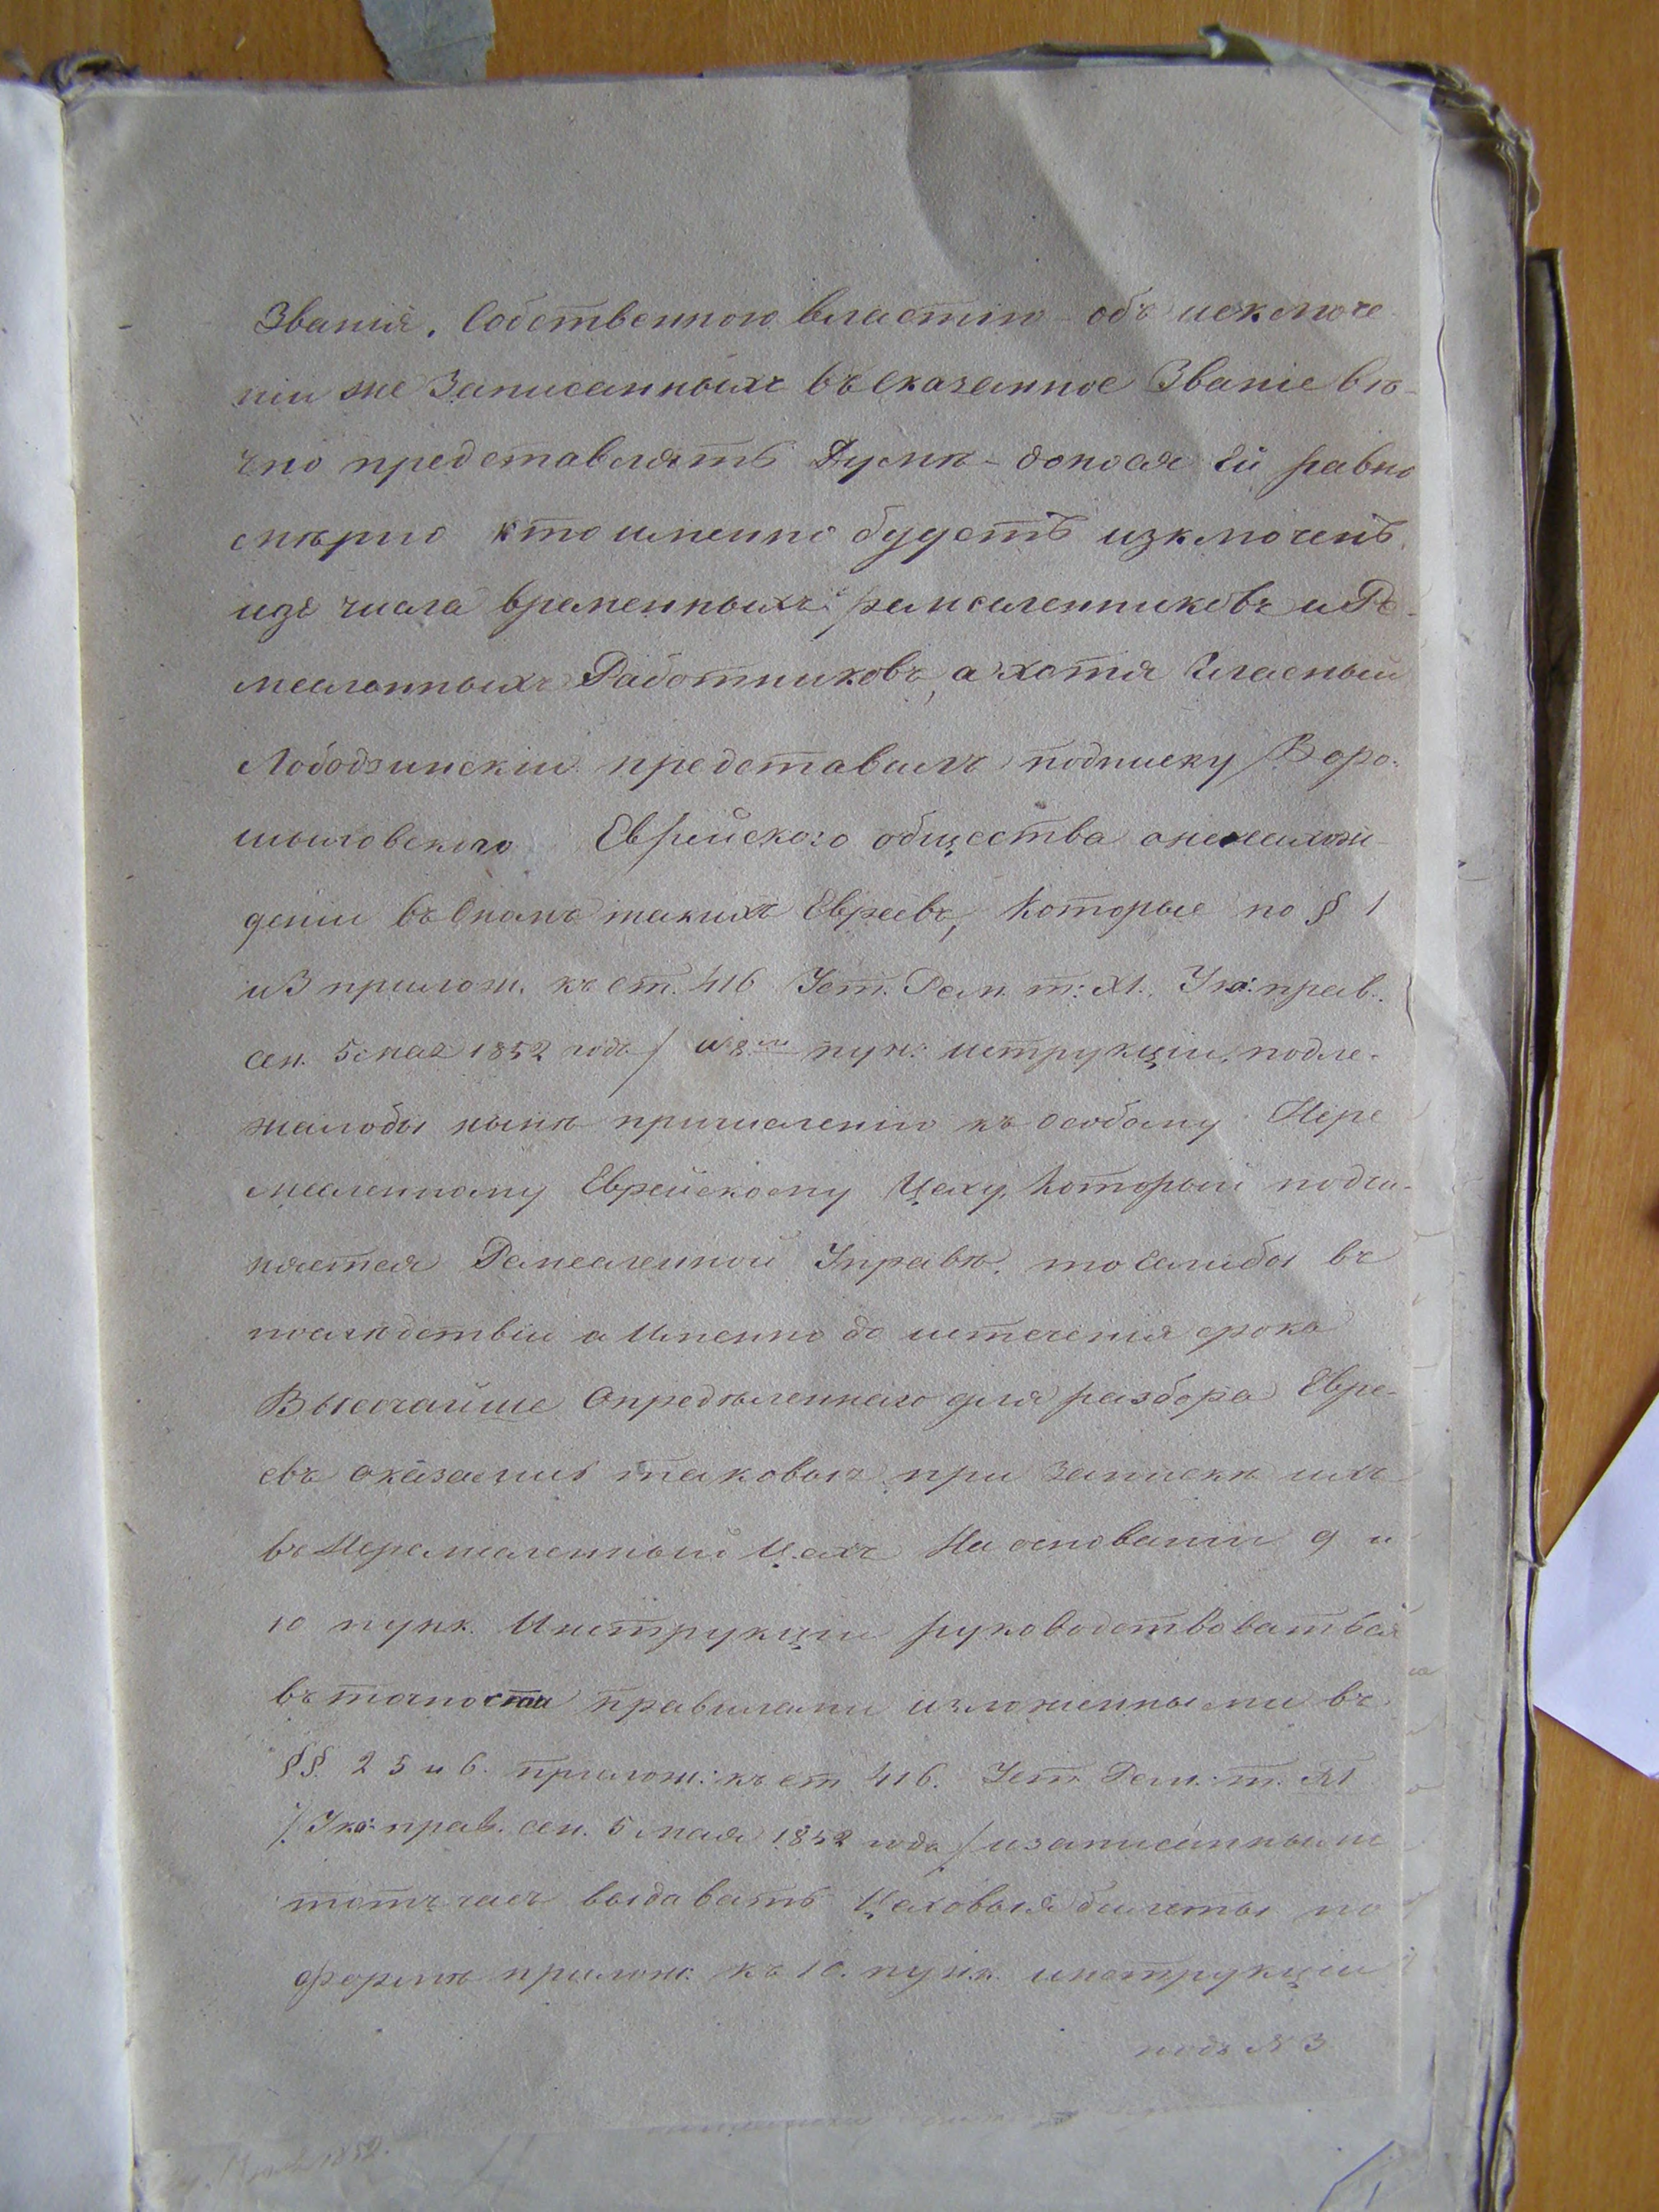 Званія. Собственною властію – объ исключе
ніи же Записанныхъ въ сказанное Званіе вѣ-
чно представлять Думѣ – донося Ей равно
мѣрно кто именно будетъ изключенъ
изъ числа временныхъ ремесленниковъ и Ре-
месленныхъ Работниковъ, а хотя Гласный
Лободзинскій представилъ подписку / Воро-
шиловского Еврейского общества о ненахож-
деніи въ Ономъ такихъ Евреевъ, которые по § 1
и 3 прилож. къ ст. 416 Уст. Рем. т: XI. Ука: прав.
сен. 5 мая 1852 года / и 8му пун: иструкціи, подле-
жалобы нынѣ причисленію къ особому Нере
месленному Еврейскому Цеху, который подчи-
няется Ремесленной Управѣ. то Еслибы въ
послѣдствіи а Именно до истеченія срока
Высочайше Опредѣленнаго для разбора Евре-
евъ оказались таковые при запискѣ ихъ
въ Неремесленный Цехъ На основаніи 9 и
10 пунк. Инструкціи руководствоваться
въ точности правилами изложенными въ
§§ 2 5 и 6. прилож: къ ст 416. Уст. Рем: т. XI
/ Ука: прав. сен. 5 мая 1852 года / и записаннымъ
тотъ часъ выдавать Цеховые билеты по
формѣ прилож: къ 10. пунк. инструкціи
подъ № 3